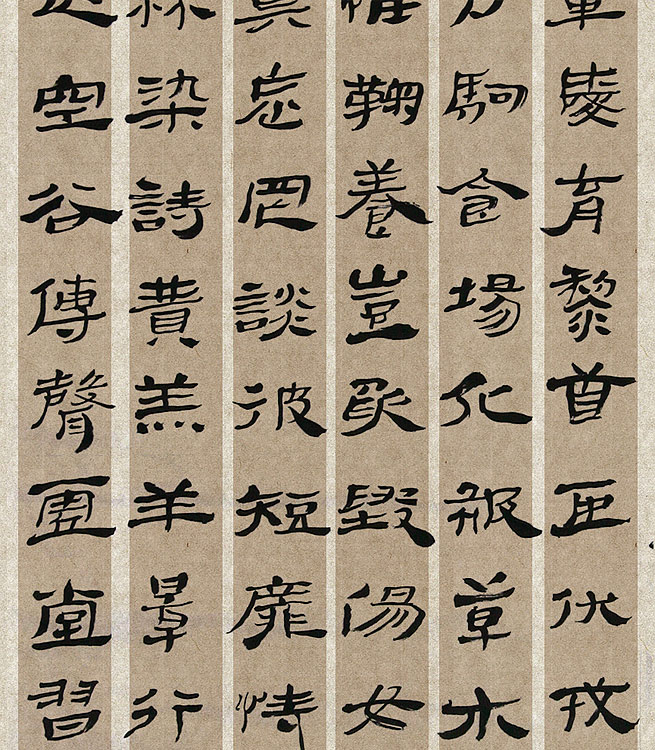 章愛育黎首臣伏戎
駒食場化被草木
惟鞠養豈敢毀傷女
莫忘罔談彼短靡恃
絲染詩賛羔羊景行
正空谷傳聲虛堂習